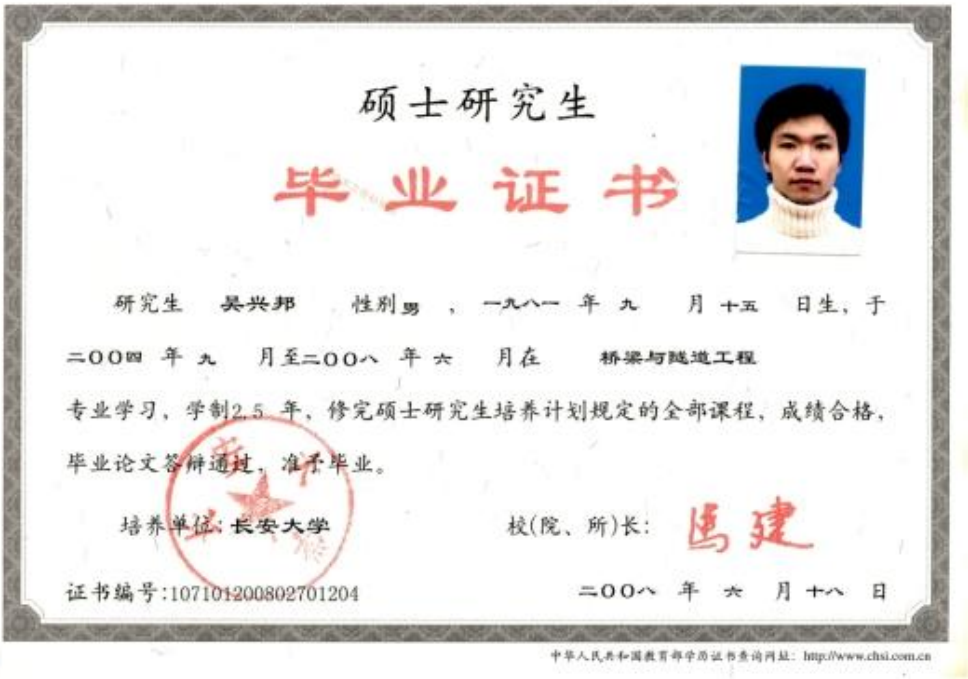 硕士研究生
毕业证书
研究生 吴兴邦 性别男 ，一九八一 年 九 月 十五 日生，于
二〇〇四 年 九 月至二〇〇八 年 六 月在 桥梁与隧道工程
专业学习，学制2.5 年，修完硕士研究生培养计划规定的全部课程，成绩合格，
毕业论文答辩通过，准予毕业。
培养单位：长安大学 校(院、所)长： 马建
证书编号：107101200802701204 二〇〇八 年 六 月 十八 日
中华人民共和国教育部学历证书查询网址：http://www.chsi.com.cn